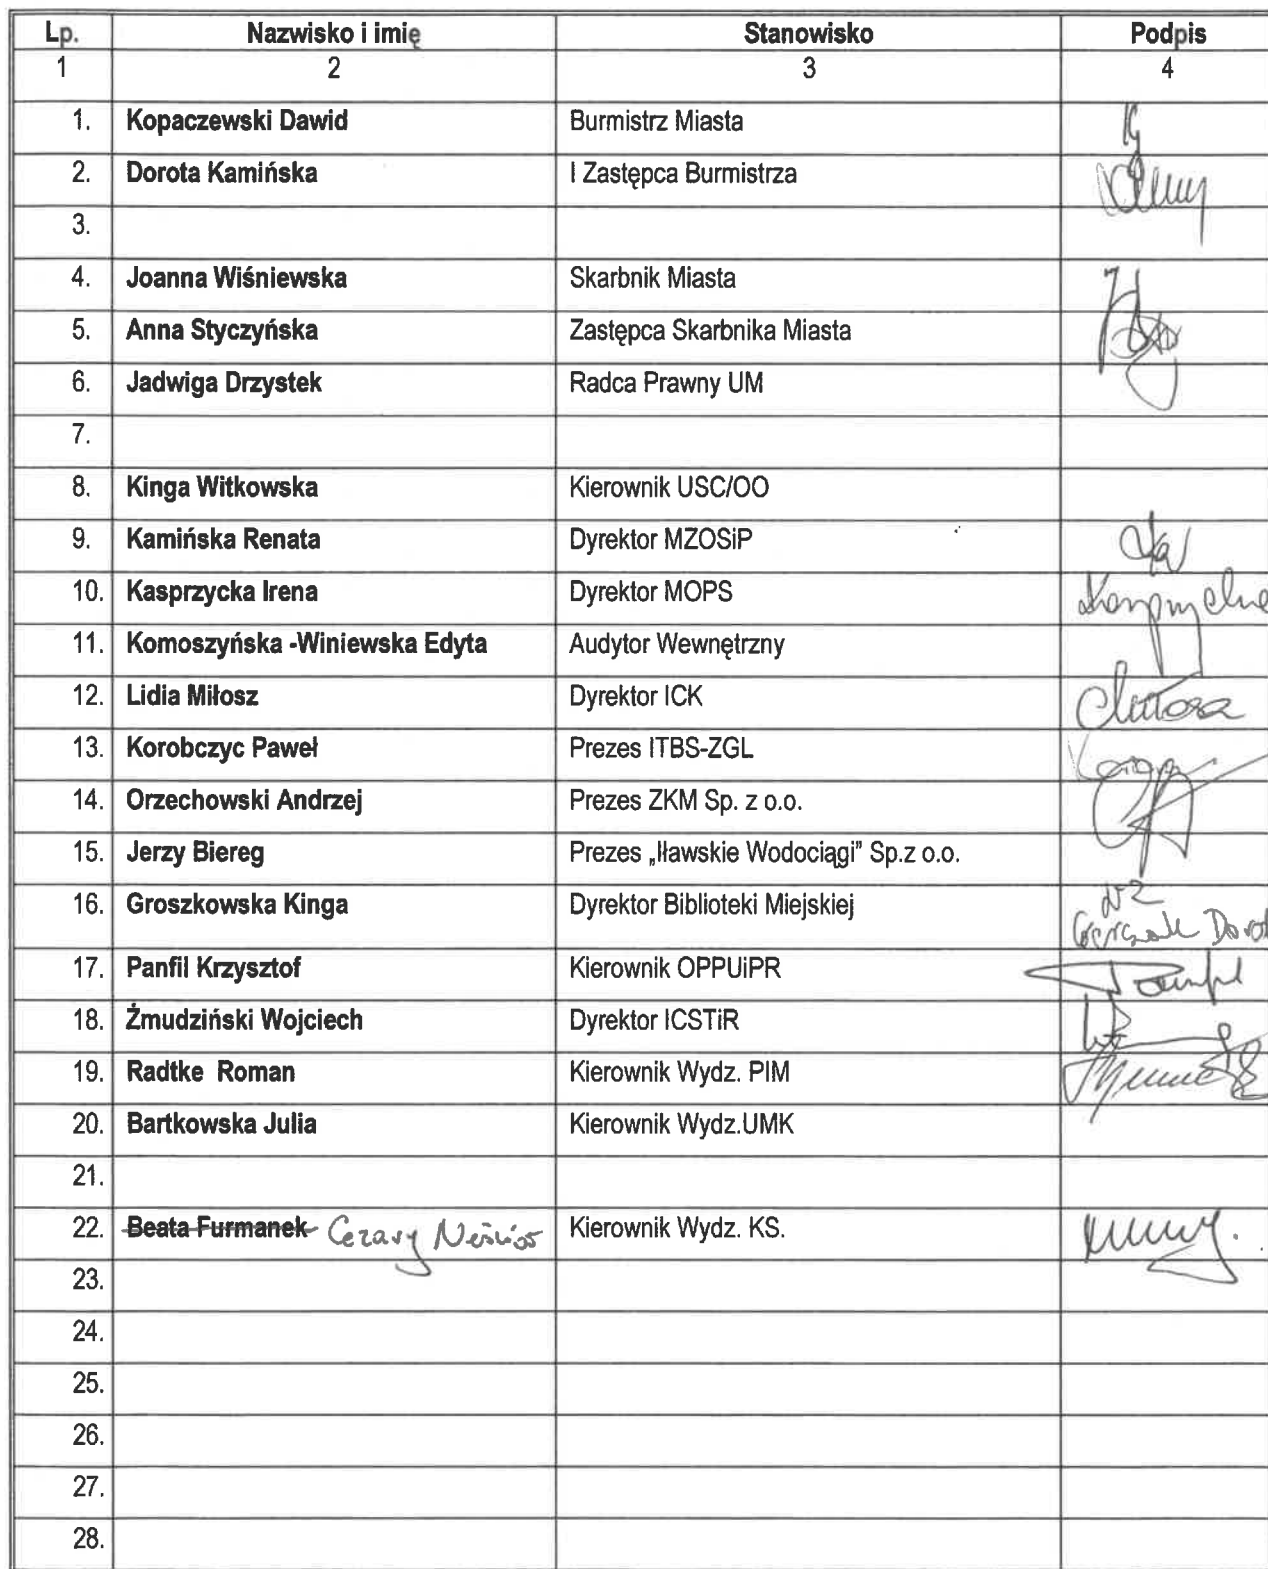 Lp. Nazwisko i imię Stanowisko Podpis
1 2 3 4
1. Kopaczewski Dawid Burmistrz Miasta
2. Dorota Kamińska I Zastępca Burmistrza
3.
4. Joanna Wiśniewska Skarbnik Miasta
5. Anna Styczyńska Zastępca Skarbnika Miasta
6. Jadwiga Drzystek Radca Prawny UM
7.
8. Kinga Witkowska Kierownik USC/OO
9. Kamińska Renata Dyrektor MZOSiP
10. Kasprzycka Irena Dyrektor MOPS
11. Komoszyńska -Winiewska Edyta Audytor Wewnętrzny
12. Lidia Miłosz Dyrektor ICK
13. Korobczyc Paweł Prezes ITBS-ZGL
14. Orzechowski Andrzej Prezes ZKM Sp. z o.o.
15. Jerzy Biereg Prezes „Iławskie Wodociągi” Sp.z o.o.
16. Groszkowska Kinga Dyrektor Biblioteki Miejskiej
17. Panfil Krzysztof Kierownik OPPUiPR
18. Żmudziński Wojciech Dyrektor ICSTiR
19. Radtke Roman Kierownik Wydz. PIM
20. Bartkowska Julia Kierownik Wydz.UMK
21.
22. Beata Furmanek Cezary Kierownik Wydz. KS.
23.
24.
25.
26.
27.
28.